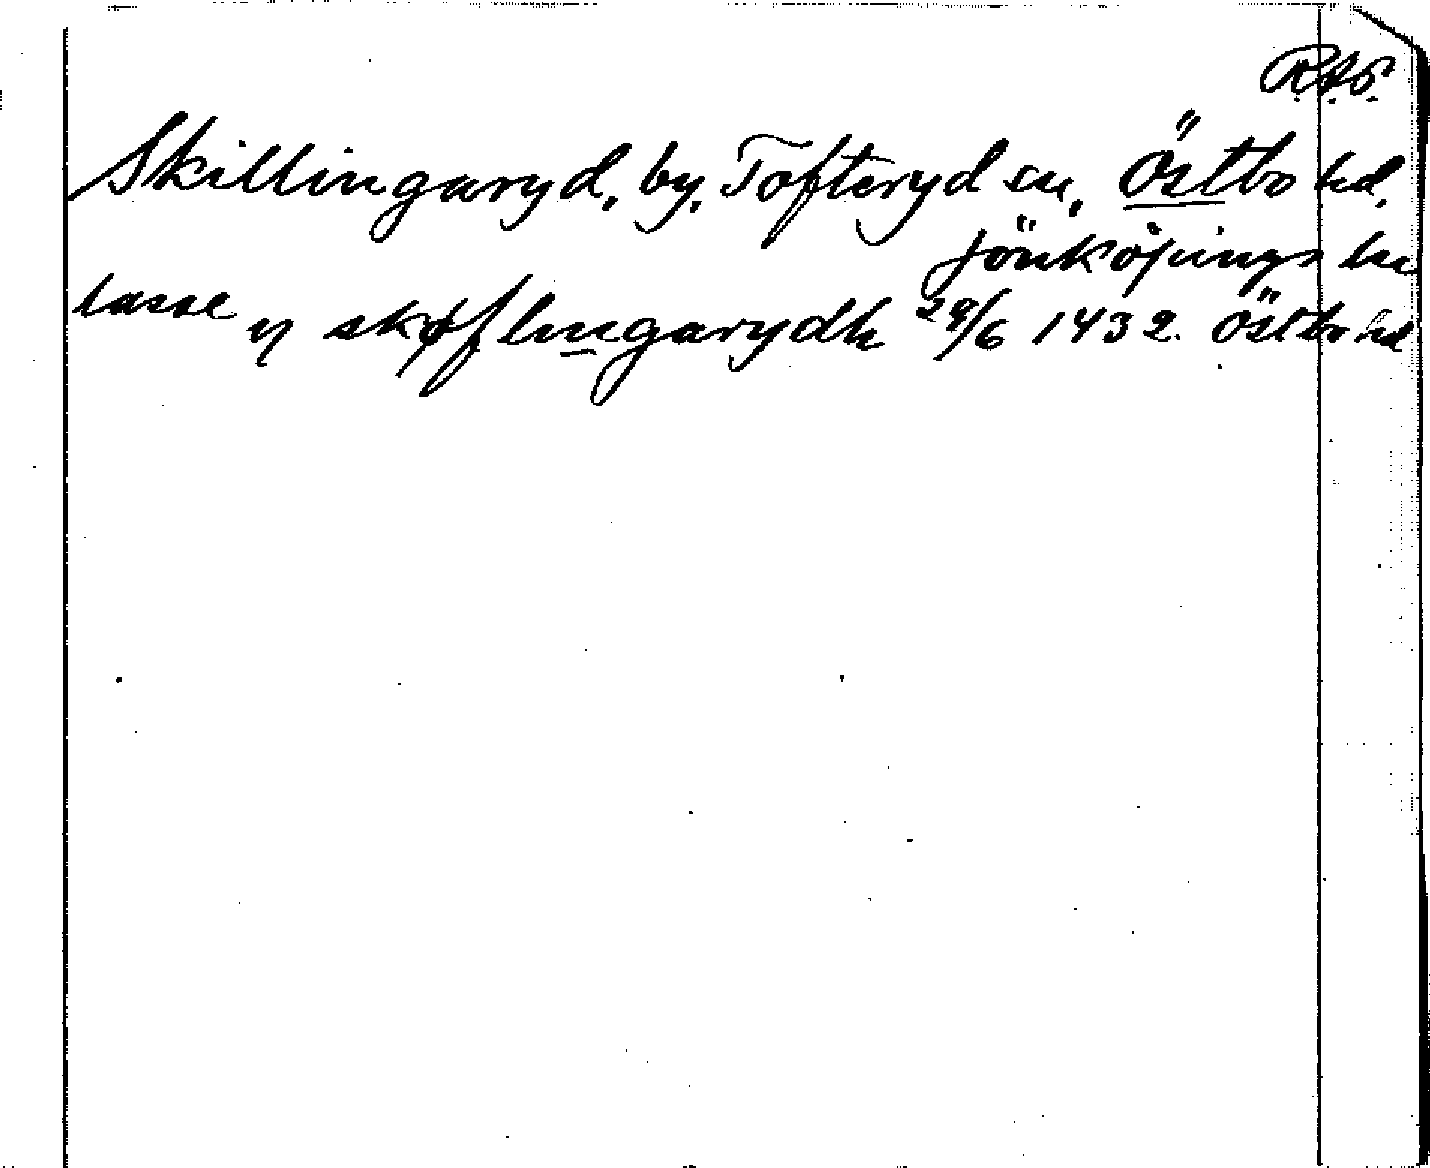 Skillingaryd, by, Tofteryd sn, Östbo hd,
Jönköpings län
lasse y skøflingarydh 29/6 1432. Östbo hd